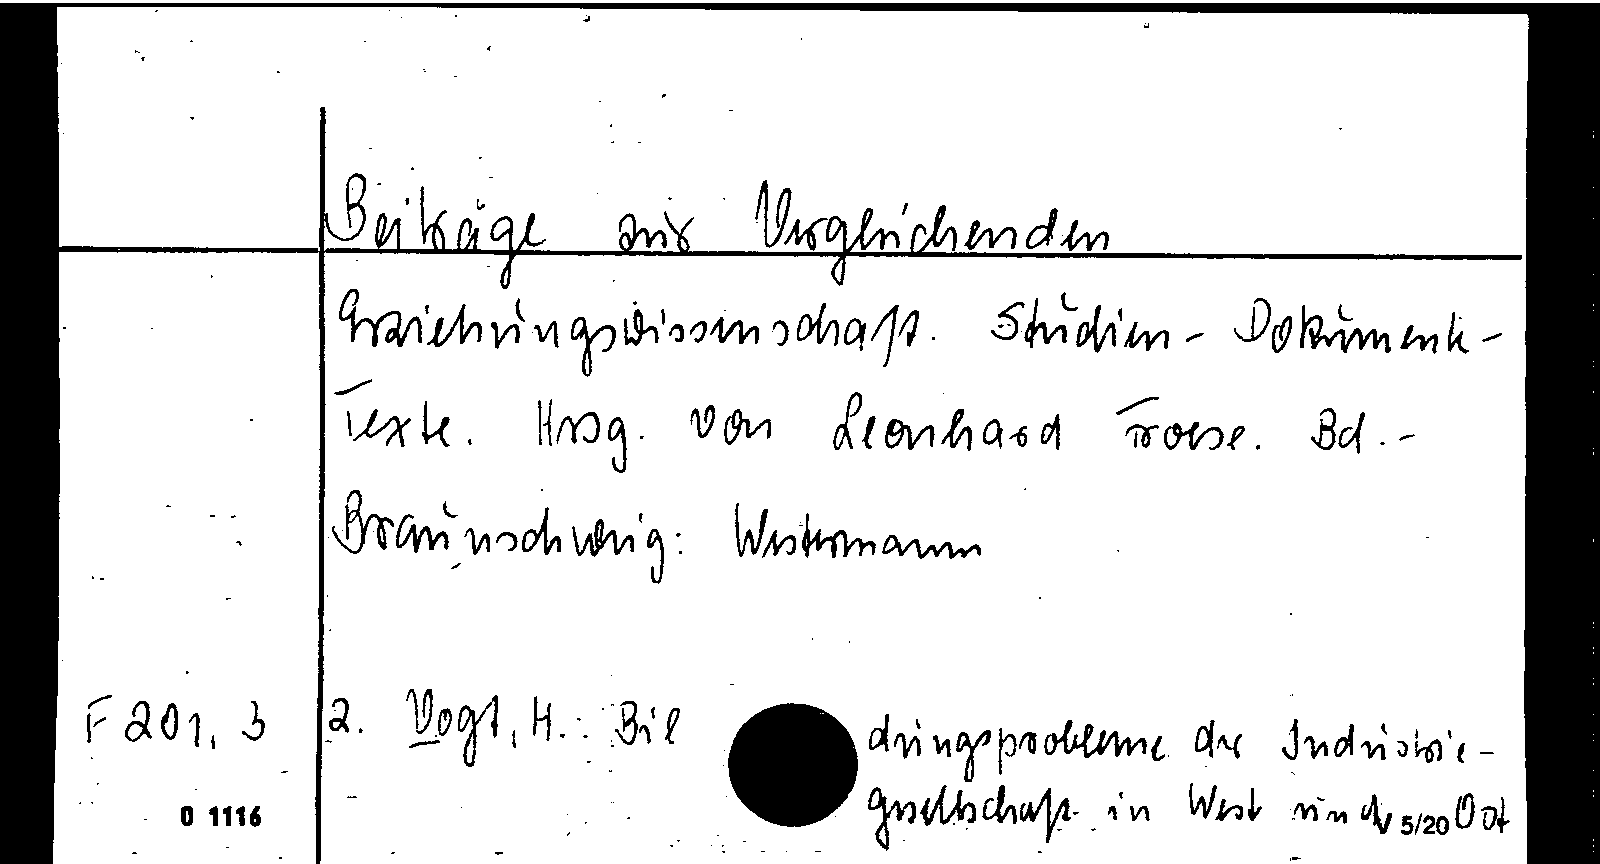 Beiträge zur Vergleichenden
Erziehungswissenschaft. Studien - Dokumente -
Texte. Hrsg. von Leonhard Froese. Bd. -
Braunschweig: Westermann
F 201, 3 2. Vogt, H.: Bil dungsprobleme der Industrie-
gesellschaft in West und Ost
0 1116 5/20